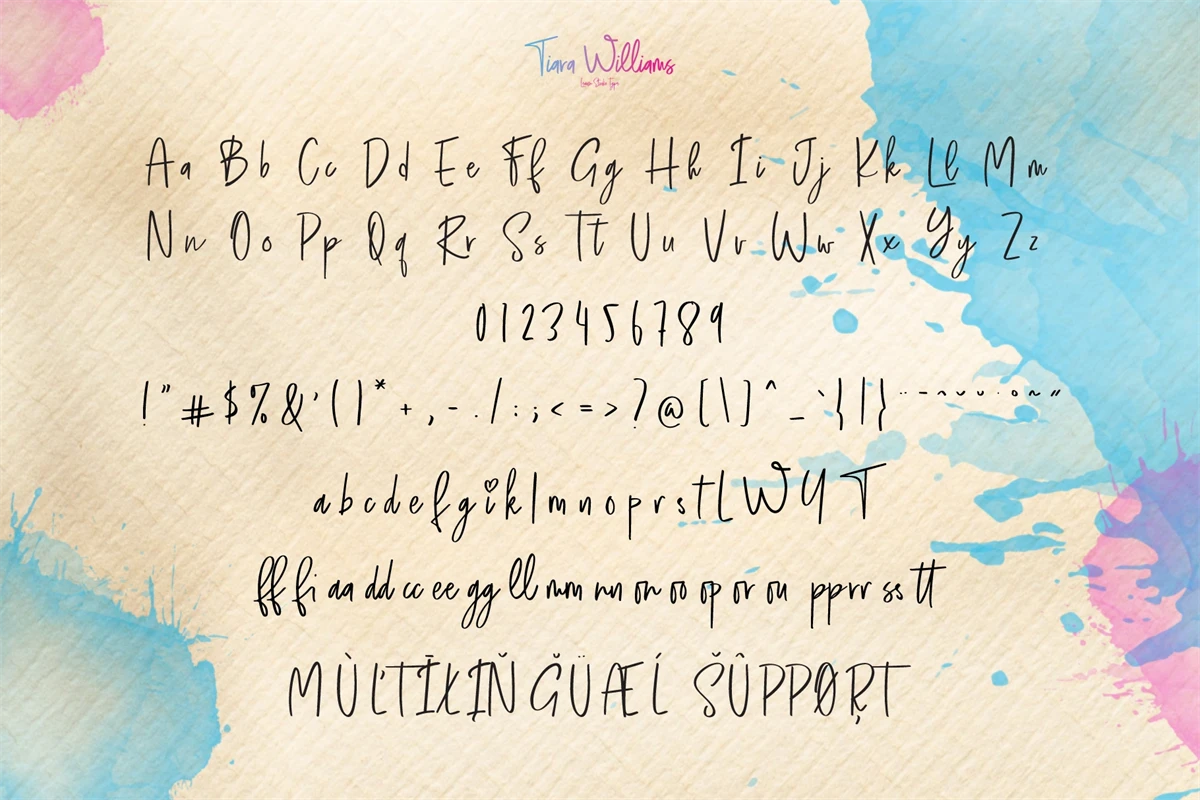 Tiara Williams
Aa Bb Cc Dd Ee Ff Gg Hh Ii Jj Kk Ll Mm
Nn Oo Pp Qq Rr Ss Tt Uu Vv Ww Xx Yy Zz
0123456789
! " # $ % & ' ( ) * + , - . / : ; < = > ? @ [ \ ] ^ _ ` { | } ¨ ¯ ˆ ˇ ˘ ˙ ˚ ˜ ˝
a b c d e f g i k l m n o p r s t L W Y T
ff fi aa dd cc ee gg ll mm nn on oo op or ou pp rr ss tt
MÙĽTĪŁIŇĞÜÆĹ ŠÛPPØŖT